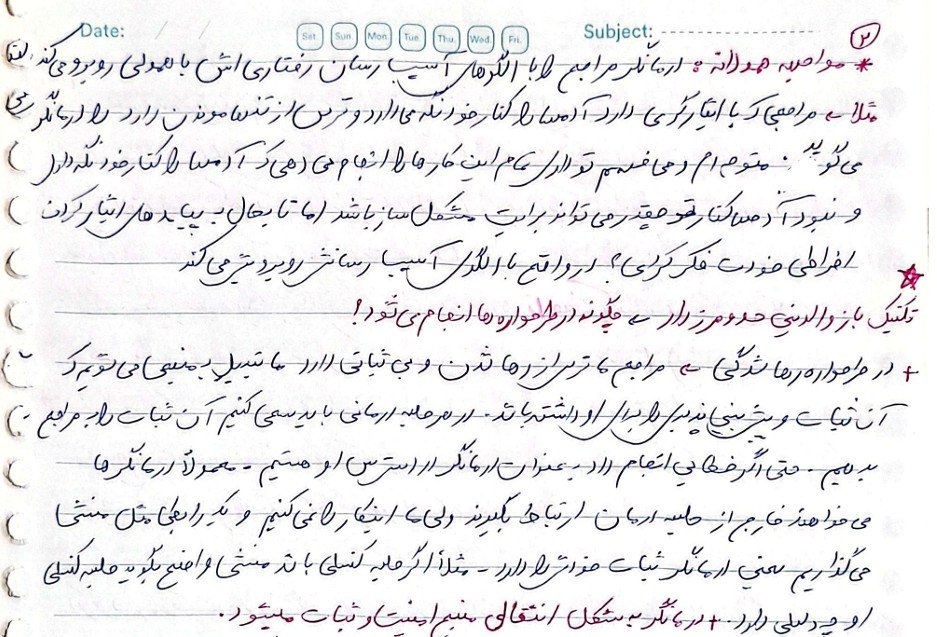 Date: / / Sat. Sun. Mon. Tue. Thu. Wed. Fri. Subject: ۲
* مواجهه همدلانه: درمانگر مراجع را با الگوهای آسیب رسان رفتاری اش با همدلی روبرو می کند
مثلا ← مراجعی که با ایثارگری دارد آدمها را کنار خود نگه می دارد و ترس از تنها موندن دارد را درمانگر می
گوید: متوجه ام و می فهمم تو داری تمام این کارها را انجام می دهی که آدمها را کنار خود نگه داری
و نبود آدمها کنار تو چقدر می تواند برایت مشکل ساز باشد اما تا بحال به پیامدهای ایثار کردن
افراطی خودت فکر کردی؟ در واقع با الگوی آسیب رسانش روبرویش می کند
تکنیک باز والدینی حد و مرز دار ← چگونه در طرحواره ها انجام می شود!
+ در طرحواره رها شدگی ← مراجع ما ترس از رها شدن و بی ثباتی دارد ما تبدیل به منبعی می شویم که
آن ثبات و پیش بینی پذیری را برای او داشته باشد. در هر جلسه درمانی باید سعی کنیم آن ثبات را به مراجع
بدهیم. حتی اگر خطایی انجام داد به عنوان درمانگر در دسترس او هستیم. معمولاً درمانگرها
می خواهند خارج از جلسه درمان ارتباط بگیرند ولی ما اینکار را نمی کنیم و یک رابطی مثل منشی
می گذاریم یعنی درمانگر ثبات خودش را دارد. مثلاً اگر جلسه کنسلی باشد منشی واضح بگوید جلسه کنسلی
او چه دلیلی دارد. + درمانگر به شکل انتقالی منبع امنیت و ثبات میشود.